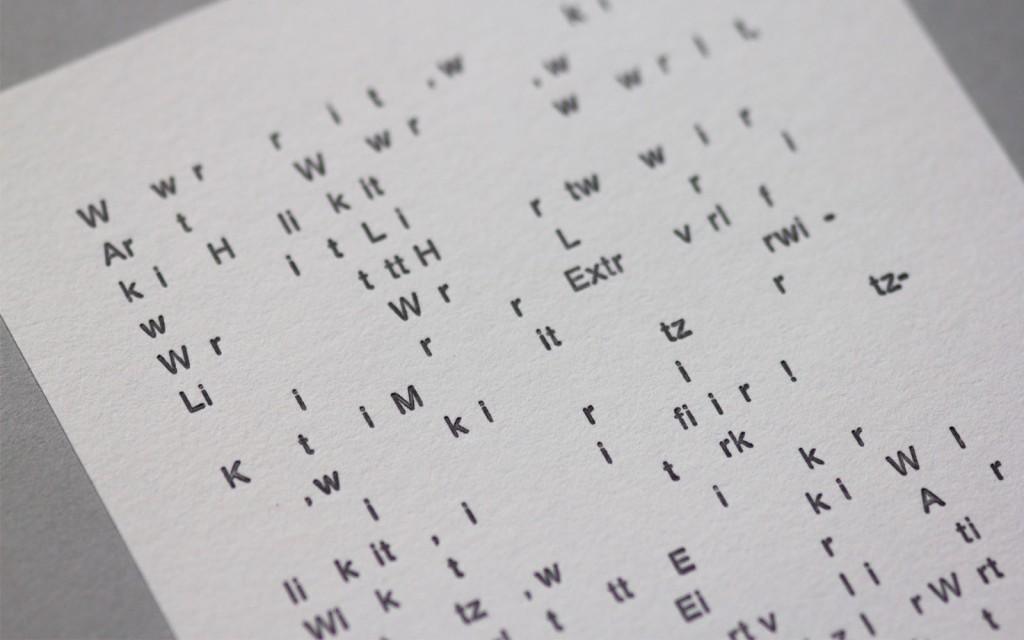 W w r r i t ,w k i
Ar t W w r ,w
k i H li k it w w r i t,
w i t L i
W r t tt H r tw w i r
Li W r L r i
i r r Extr v rl f
K t i M it rwi -
,w k i tz r
i r i tz-
li k it , i i fi i r !
Wi k t t rk
tz ,w i k r
t tt E k i W l
Ei r A r
rt v l i ti
z l r W rt
t